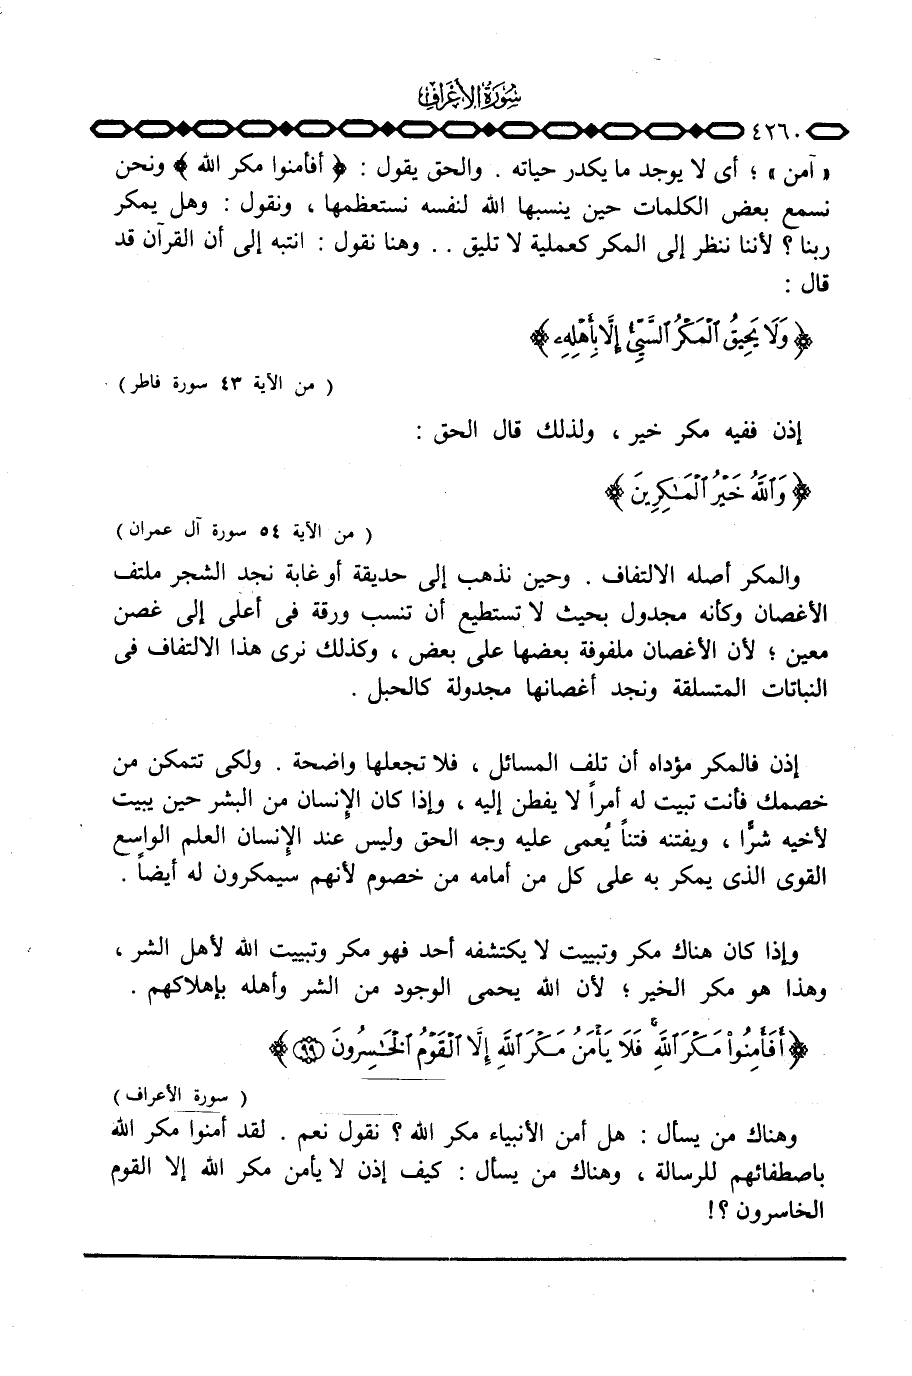 سورة الأعراف
٤٢٦٠
« آمن » ؛ أى لا يوجد ما يكدر حياته . والحق يقول : ﴿ أفأمنوا مكر الله ﴾ ونحن
نسمع بعض الكلمات حين ينسبها الله لنفسه نستعظمها ، ونقول : وهل يمكر
ربنا ؟ لأننا ننظر إلى المكر كعملية لا تليق . . وهنا نقول : انتبه إلى أن القرآن قد
قال :
﴿ وَلَا يَحِيقُ ٱلْمَكْرُ ٱلسَّيِّئُ إِلَّا بِأَهْلِهِۦ ﴾
( من الآية ٤٣ سورة فاطر )
إذن ففيه مكر خير ، ولذلك قال الحق :
﴿ وَٱللَّهُ خَيْرُ ٱلْمَـٰكِرِينَ ﴾
( من الآية ٥٤ سورة آل عمران )
والمكر أصله الالتفاف . وحين نذهب إلى حديقة أو غابة نجد الشجر ملتف
الأغصان وكأنه مجدول بحيث لا تستطيع أن تنسب ورقة فى أعلى إلى غصن
معين ؛ لأن الأغصان ملفوفة بعضها على بعض ، وكذلك نرى هذا الالتفاف فى
النباتات المتسلقة ونجد أغصانها مجدولة كالحبل .
إذن فالمكر مؤداه أن تلف المسائل ، فلا تجعلها واضحة . ولكى تتمكن من
خصمك فأنت تبيت له أمراً لا يفطن إليه ، وإذا كان الإنسان من البشر حين يبيت
لأخيه شرًّا ، ويفتنه فتناً يُعمى عليه وجه الحق وليس عند الإنسان العلم الواسع
القوى الذى يمكر به على كل من أمامه من خصوم لأنهم سيمكرون له أيضاً .
وإذا كان هناك مكر وتبييت لا يكتشفه أحد فهو مكر وتبييت الله لأهل الشر ،
وهذا هو مكر الخير ؛ لأن الله يحمى الوجود من الشر وأهله بإهلاكهم .
﴿ أَفَأَمِنُوا۟ مَكْرَ ٱللَّهِ ۚ فَلَا يَأْمَنُ مَكْرَ ٱللَّهِ إِلَّا ٱلْقَوْمُ ٱلْخَـٰسِرُونَ ٩٩ ﴾
( سورة الأعراف )
وهناك من يسأل : هل أمن الأنبياء مكر الله ؟ نقول نعم . لقد أمنوا مكر الله
باصطفائهم للرسالة ، وهناك من يسأل : كيف إذن لا يأمن مكر الله إلا القوم
الخاسرون ؟!